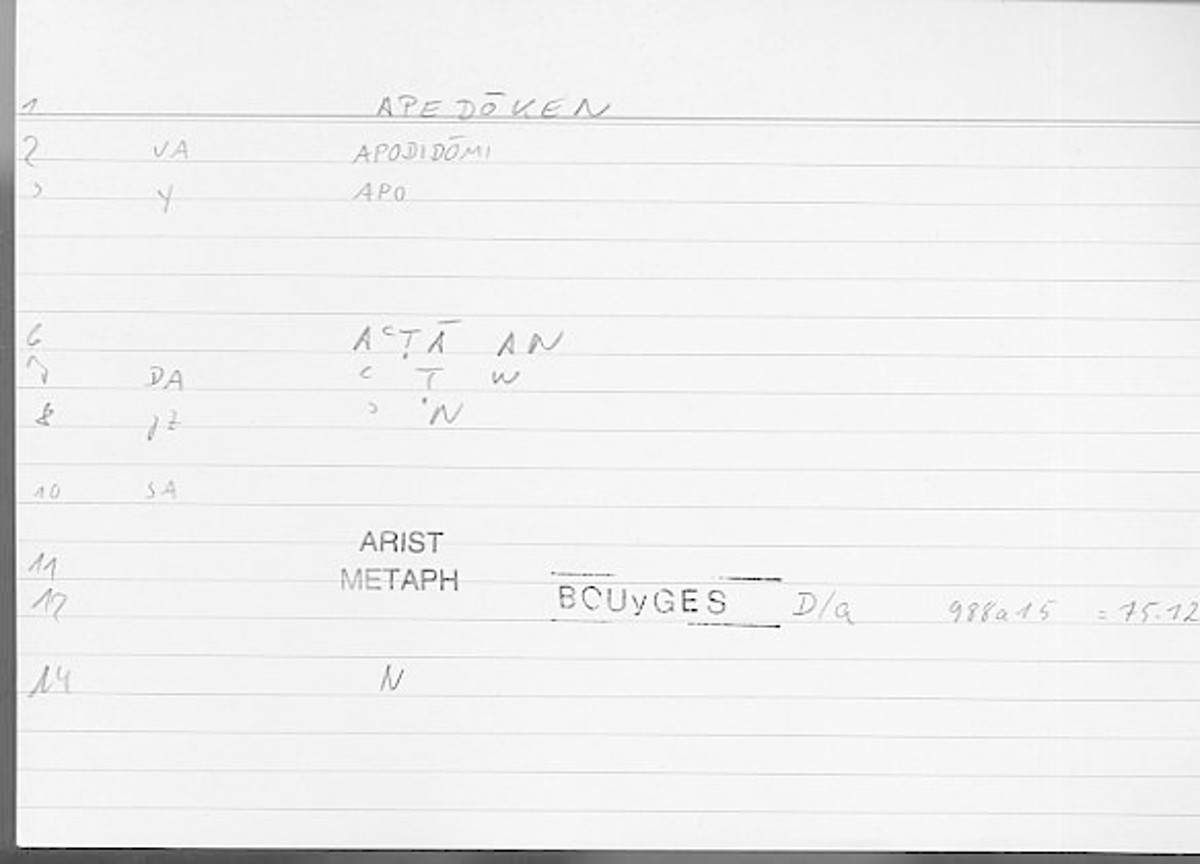 1 APEDŌKEN
2 VA APODIDŌMI
3 y APO
6 AʿṬĀ AN
7 DA ʿ Ṭ W
8 jz ʾ N
10 SA
ARIST
11 METAPH
12 BOUyGES D/a 988a15 = 75.12
14 N